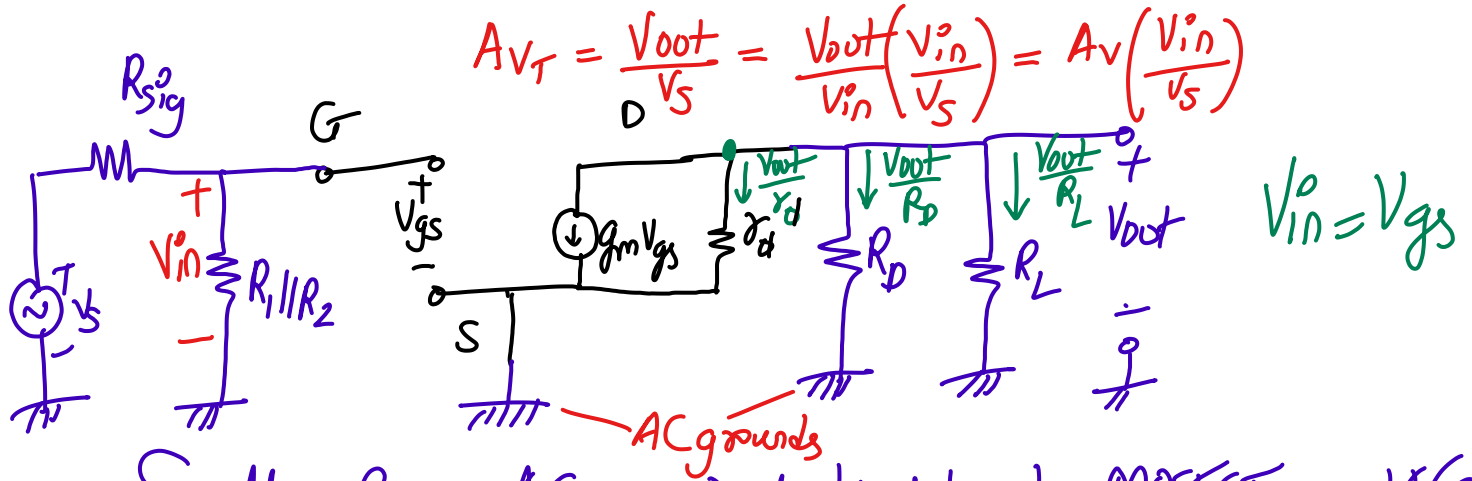 A_{V_T} = \frac{V_{out}}{V_S} = \frac{V_{out}}{V_{in}} \left( \frac{V_{in}}{V_S} \right) = A_V \left( \frac{V_{in}}{V_S} \right)
R_{sig}
G
D
+ V_{in} -
R_1 || R_2
+ V_S -
+ V_{gs} -
S
g_m V_{gs}
r_d
\frac{V_{out}}{r_d}
\frac{V_{out}}{R_D}
\frac{V_{out}}{R_L}
R_D
R_L
+ V_{out} -
V_{in} = V_{gs}
AC grounds